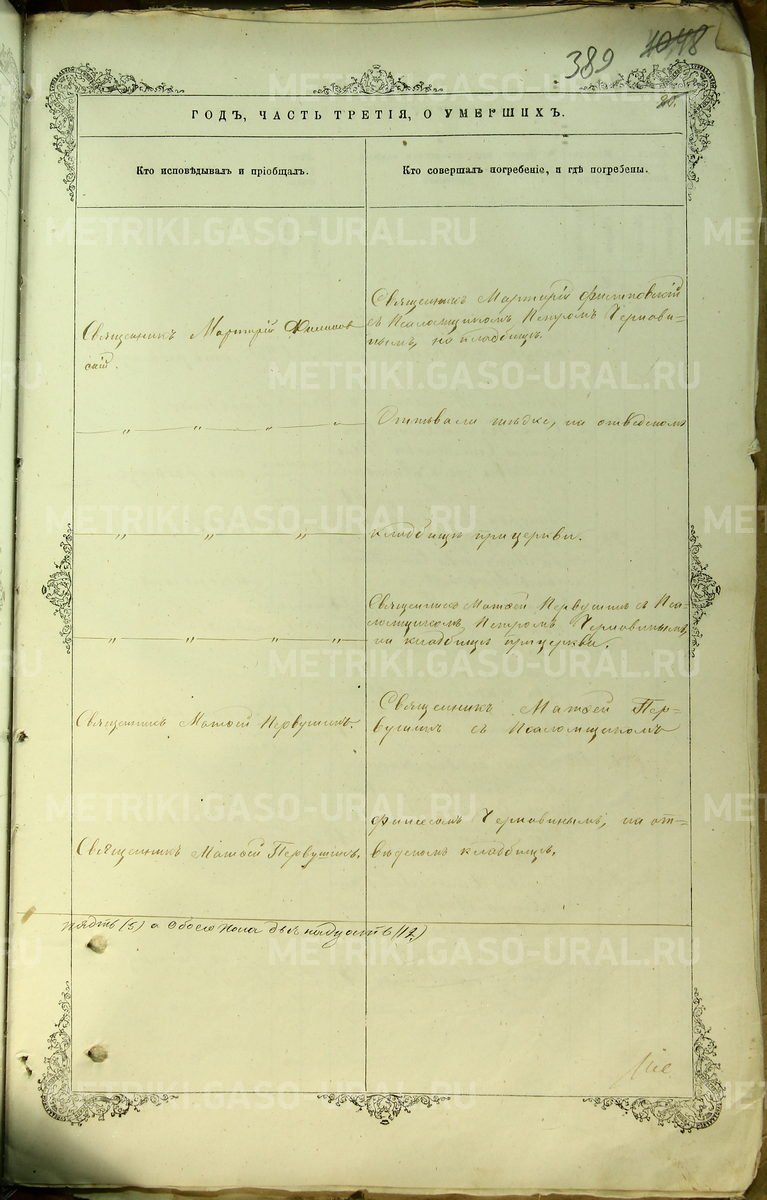 389 1048
80.
ГОДЪ, ЧАСТЬ ТРЕТІЯ, О УМЕРШИХЪ.
Кто исповѣдывалъ и пріобщалъ.
Кто совершалъ погребеніе, и гдѣ погребены.
METRIKI.GASO-URAL.RU
Священникъ Мартирій Филипов
скій.
Священникъ Мартирій Филиповскій
съ Псаломщикомъ Петромъ Черпови-
нымъ, на кладбищѣ.
„ „ „ „
Отпѣвали тѣже, на отведеномъ
„ „ „
кладбищѣ при церкви.
„ „ „ „
Священникъ Матѳей Первушинъ съ Пса-
ломщикомъ Петромъ Черповинымъ,
на кладбищѣ при церкви.
Священникъ Матѳей Первушинъ.
Священникъ Матѳей Пер-
вушинъ съ Псаломщикомъ
Священникъ Матѳей Первушинъ.
Финеесомъ Черповинымъ, на от-
ведѣномъ кладбищѣ.
пядть (5) а обоего пола двѣнадцать (12)